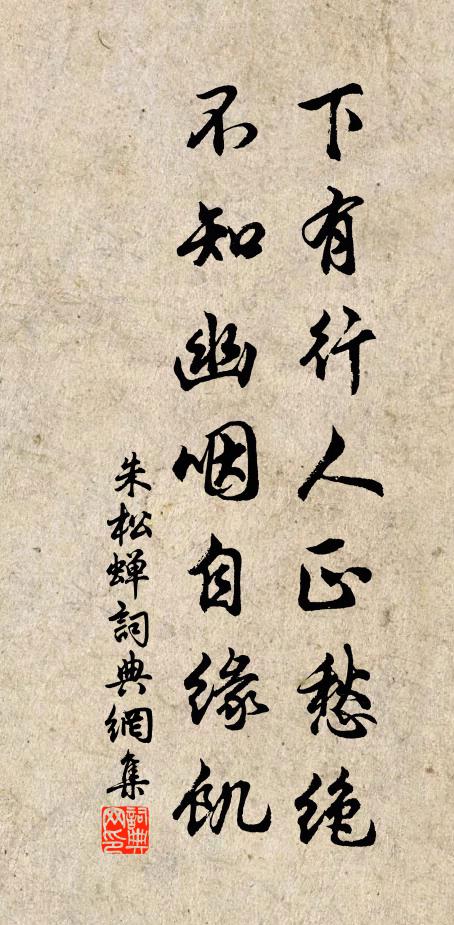 下有行人正愁绝
不知幽咽自缘饥
朱松蝉詞典網集
詞典网印